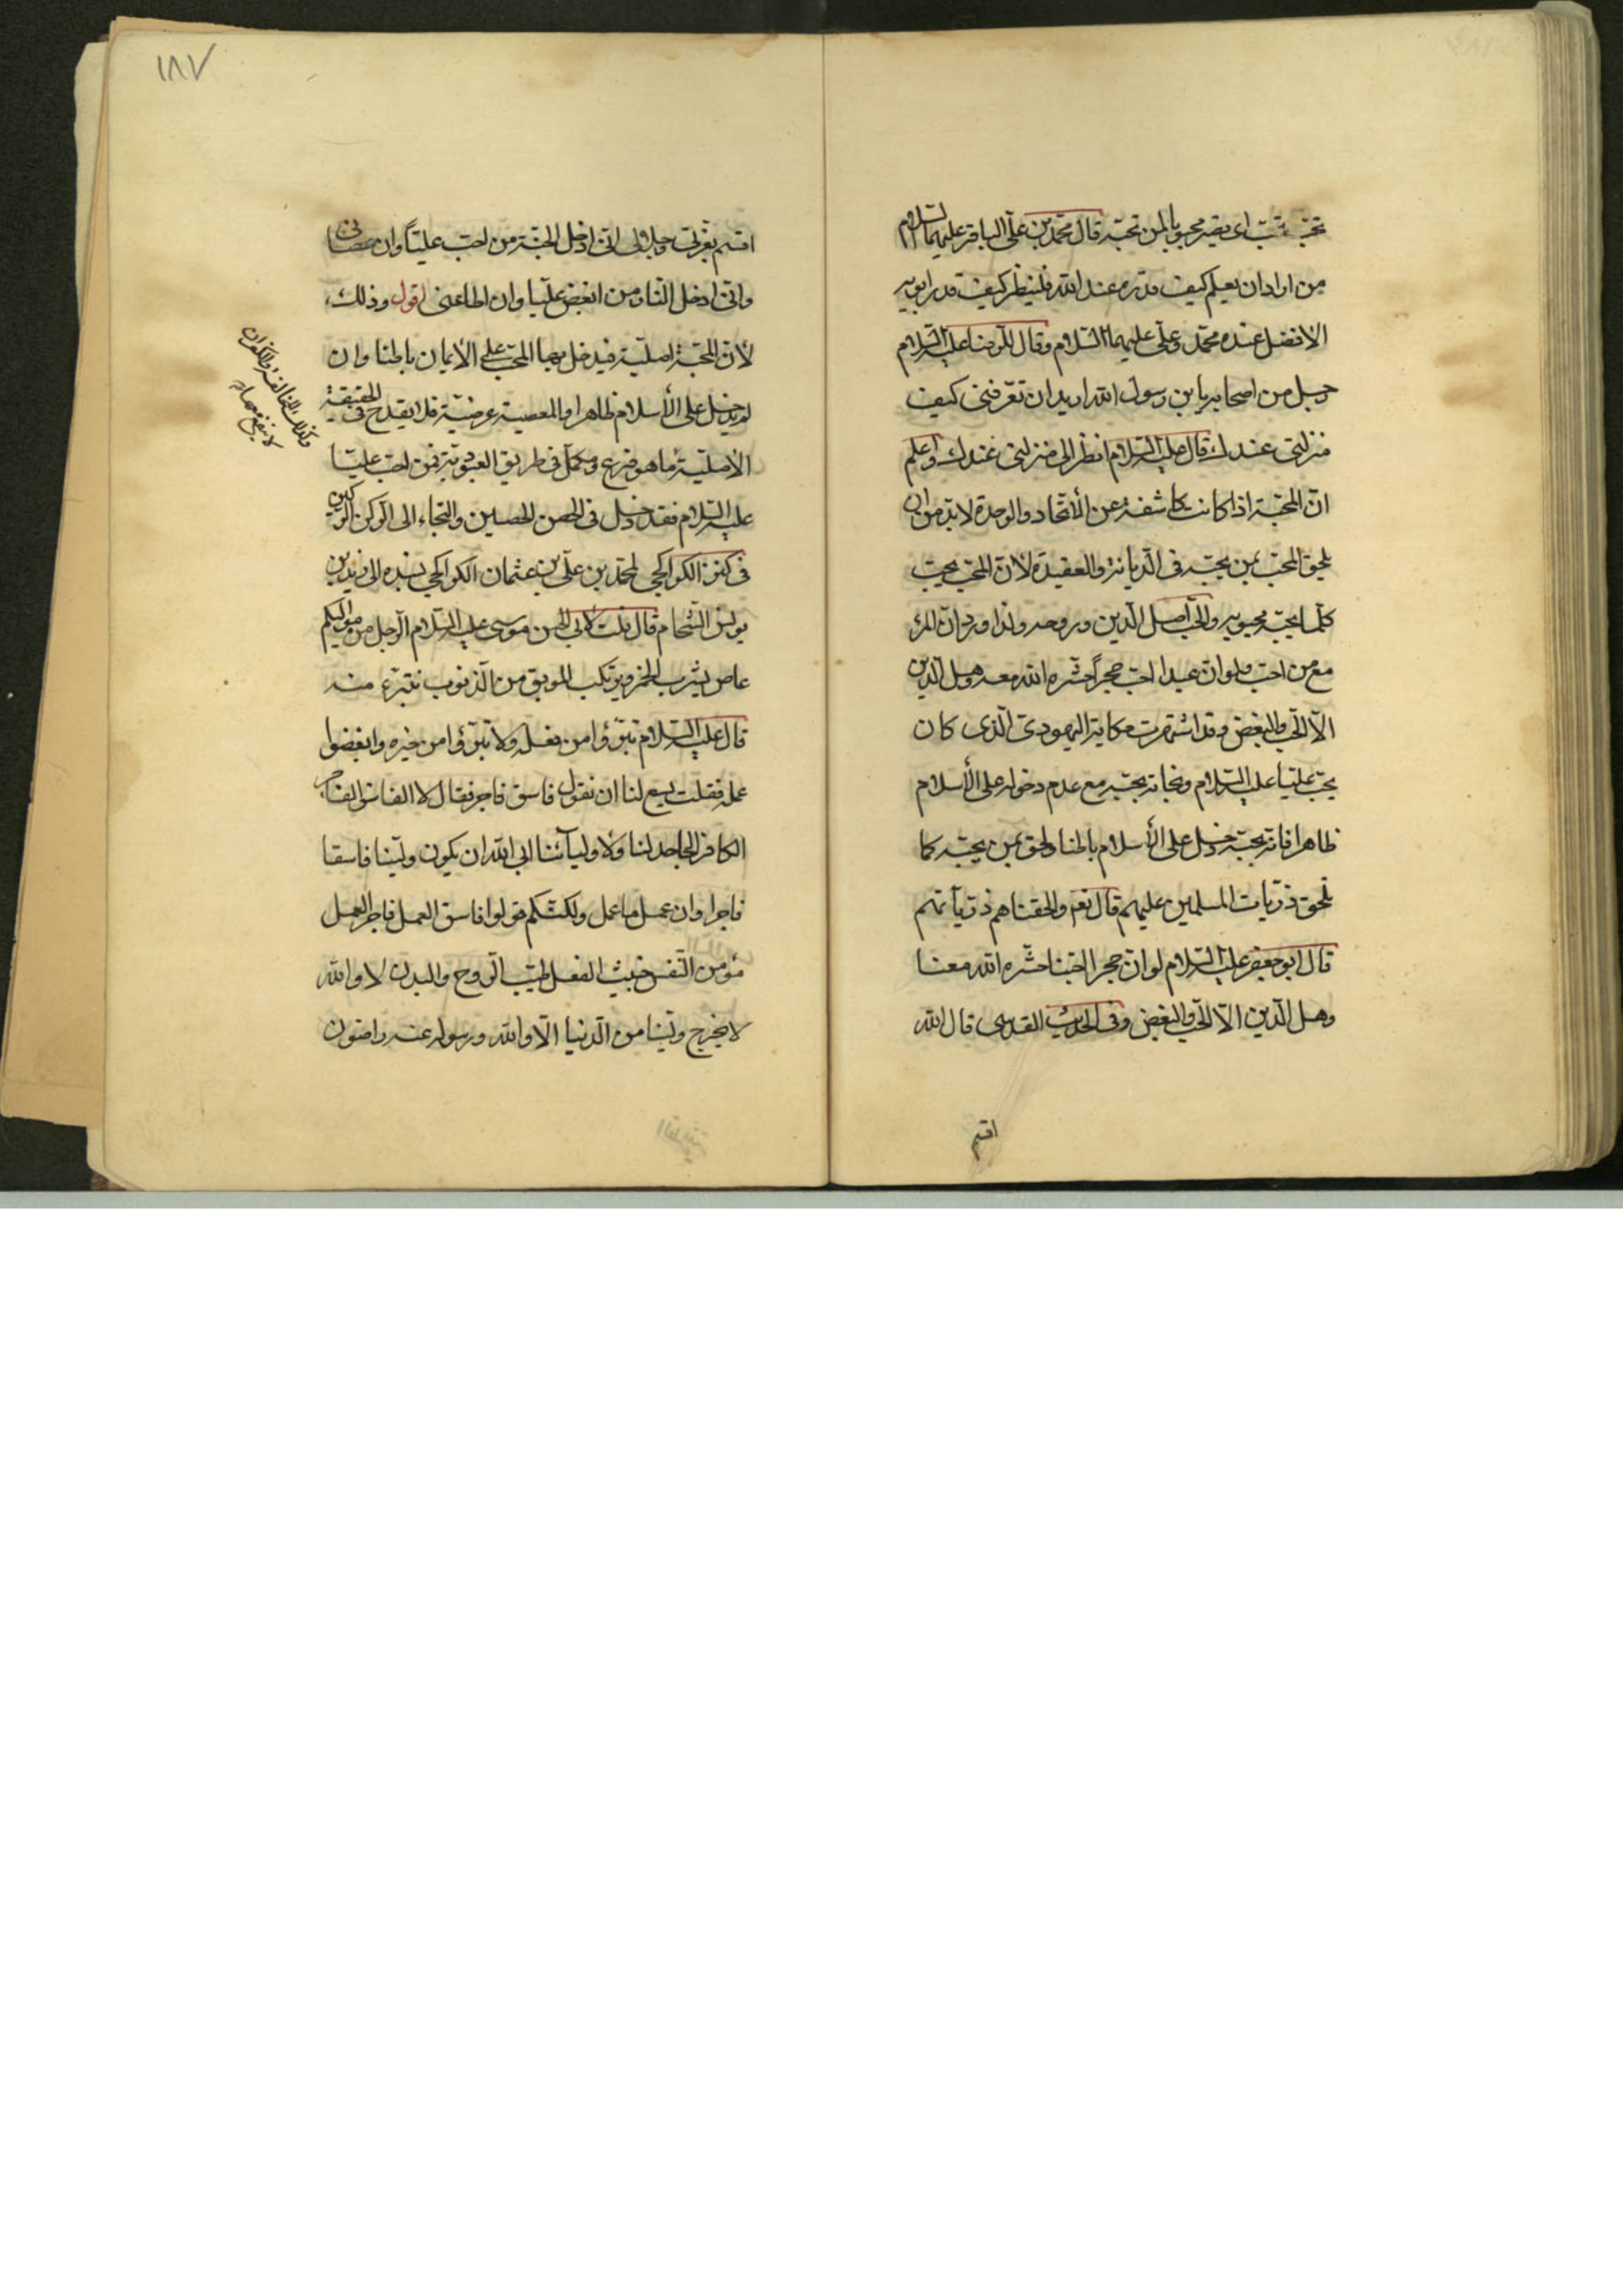 تحبّ تحبّ اى يصير محبوبا لمن تحبّه قال محمّد بن علىّ الباقر عليهما السّلام
من اراد ان يعلم كيف قدره عند الله فلينظر كيف قدر ابويه
الافضل عنده محمّد وعلىّ عليهما السّلام وقال للرّضا عليه السّلام
رجل من اصحابه يا بن رسول الله اريد ان تعرّفنى كيف
منزلتى عندك قال عليه السّلام انظر الى منزلتى عندك واعلم
انّ المحبّة اذا كانت كاشفة عن الأتّحاد والوحدة لابدّ من ان
يلحق المحبّ بمن يحبّه فى الدّيانة والعقيدة لأنّ المحبّ يحبّ
كلّما يحبّه محبوبه والحبّ اصل الدّين وروحه ولذا ورد انّ المرء
مع من احبّ ولو انّ عبدا احبّ حجراً حشره الله معه وهل الدّين
الّا الحبّ والبغض وقد اشتهرت حكاية اليهودىّ الّذى كان
يحبّ عليّا عليه السّلام ونجاته بحبّه مع عدم دخوله على الأسلام
ظاهرا فانّه بحبّه دخل على الأسلام باطنا ولحق بمن يحبّه كما
تلحق ذرّيات المسلمين عليهم قال نعم والحقناهم ذرّيآتهم
قال ابو جعفر عليه السّلام لو انّ حجرا احبّنا حشره الله معنا
وهل الدّين الّا الحبّ والبغض وفى الحديث القدسى قال الله
اقسم
١٨٧
اقسم بعزّتى وجلالى انّى ادخل الجنّة من احبّ عليّاً وان عصانى
وانّى ادخل النّار من ابغض عليّا وان اطاعنى اقول وذلك
لأنّ المحبّة اصليّة فيدخل بها المحبّ على الأيمان باطنا وان
لم يدخل على الأسلام ظاهرا والمعصية عرضيّة فلا يقدح فى الحقيقة
الأصليّة ما هو فرع ومكمّل فى طريق العبوديّة فمن احبّ عليّا
عليه السّلام فقد دخل فى الحصن الحصين والتجاء الى الرّكن الركين
فى كنز الكراجكى لمحمّد بن علىّ بن عثمان الكراجكى بسنده الى زيد بن
يونس الشّحام قال قلت لأبى الحسن موسى عليه السّلام الرّجل من مواليكم
عاص يشرب الخمر ويرتكب الموبق من الذّنوب نتبرّء منه
قال عليه السّلام تبرّؤا من فعله ولا تبرّؤا من خيره وابغضوا
عمله فقلت يسع لنا ان نقول فاسق فاجر فقال لا الفاسق الفاجر
الكافر الجاحد لنا ولأوليآئنا ابى الله ان يكون وليّنا فاسقا
فاجرا وان عمل ما عمل ولكنّكم قولوا فاسق العمل فاجر العمل
مؤمن النّفس خبيث الفعل طيّب الرّوح والبدن لا والله
لا يخرج وليّنا من الدّنيا الّا والله ورسوله عنه راضون
وكذلك المخالفة والكفران
لا ينفع معها